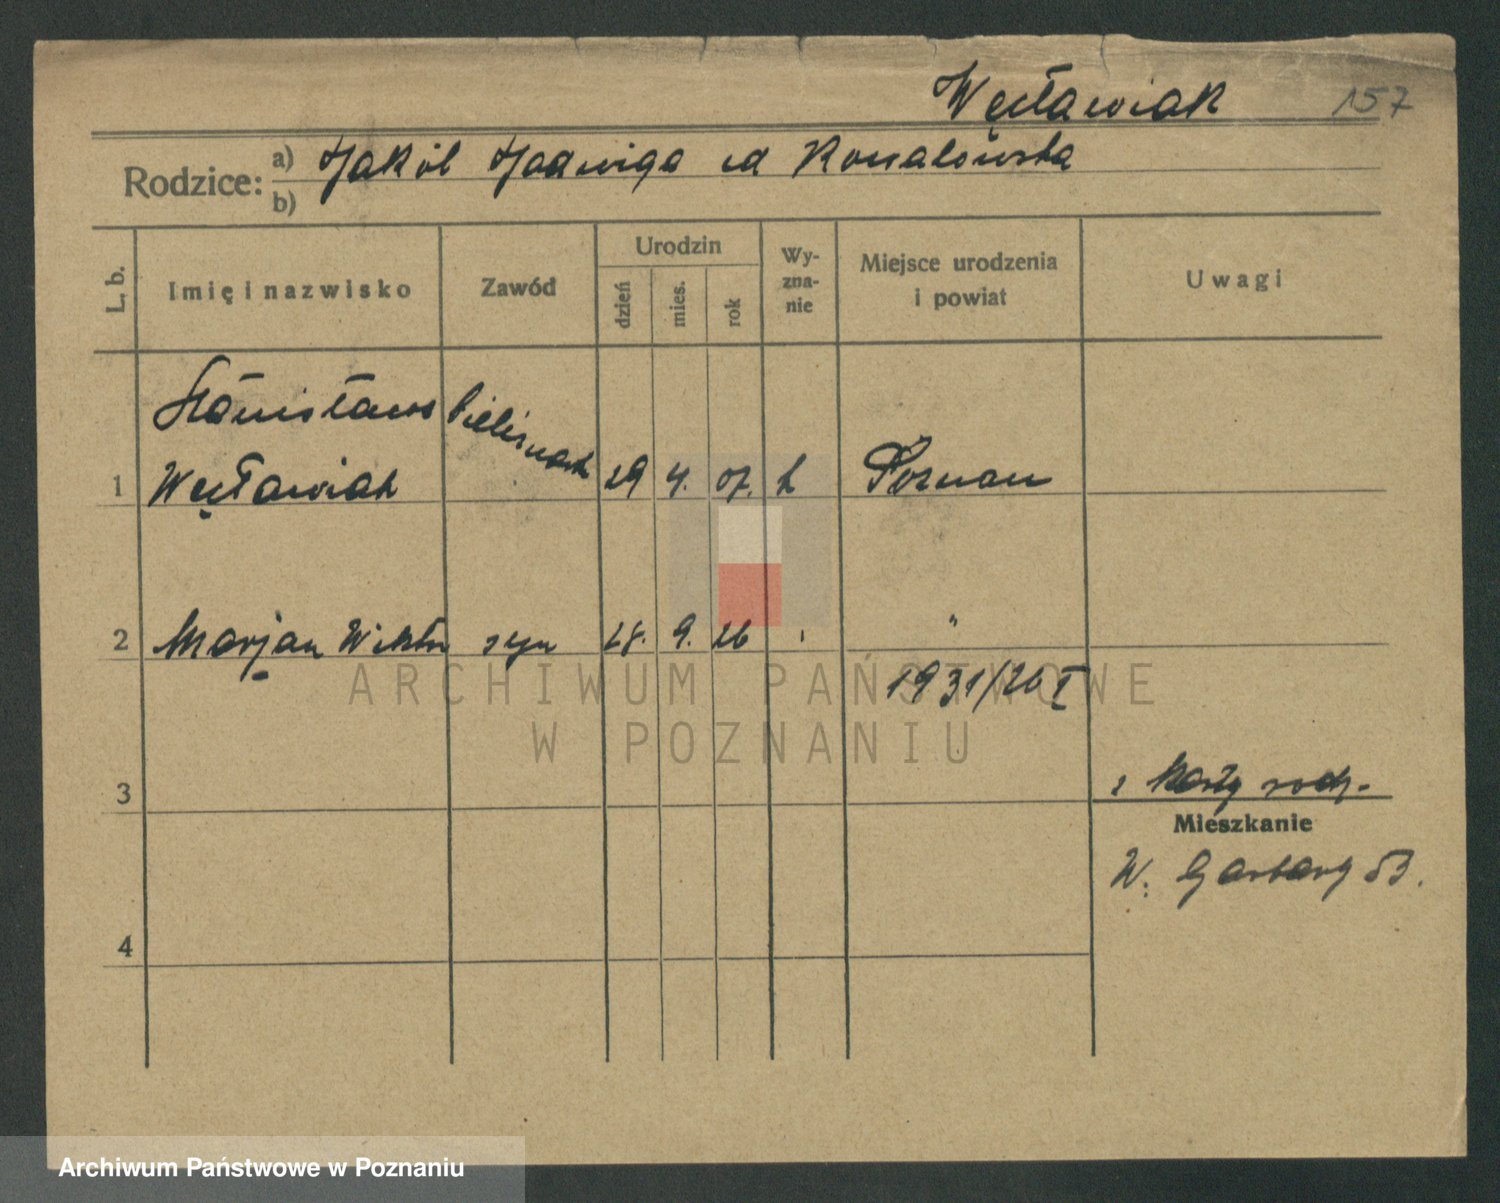 Węcławiak 157
Rodzice: a) Jakób Jadwiga
b)
L. b.
Imię i nazwisko
Zawód
Urodzin
dzień
mies.
rok
Wy-
zna-
nie
Miejsce urodzenia
i powiat
Uwagi
Stanisława
1 Węcławiak 29 4. 07. k Poznań
2 Marjan Wiktor syn 28. 9. 26 "
1931/26 I
3 z karty rodz.
Mieszkanie
W. Garbary 53.
4
ARCHIWUM PAŃSTWOWE
W POZNANIU
Archiwum Państwowe w Poznaniu